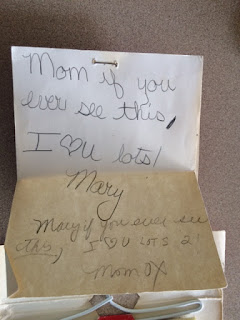 Mom if you
ever see this,
I ♡ U lots!
Mary
Mary if you ever see
this, I ♡ U LOTS 2!
Mom OX